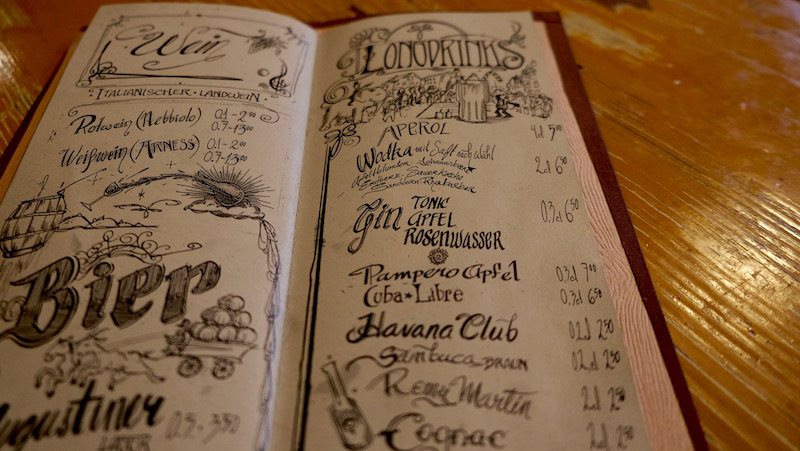 Wein
ITALIANISCHER · LANDWEIN
Rotwein (Nebbiolo) 0.1 - 2.00
0.7 - 13.00
Weißwein (ARNESS) 0.1 - 2.00
0.7 - 13.00
Bier
Augustiner 0.5 - 3.50
LAGER
LONGDRINKS
APEROL 5.00
Wodka mit Saft nach Wahl 6.50
Apfel Holunder Johannisbeer
Sauerkirsch
Sanddorn Rhabarber
Gin TONIC 0.3 cl 6.50
APFEL
ROSENWASSER
Pampero Apfel 0.3 cl 7.00
Cuba Libre 0.3 cl 6.50
Havana Club 0.2 cl 2.50
Sambuca - BRAUN 0.2 cl 2.50
Remy Martin 2 cl 2.50
Cognac 2 cl 2.50